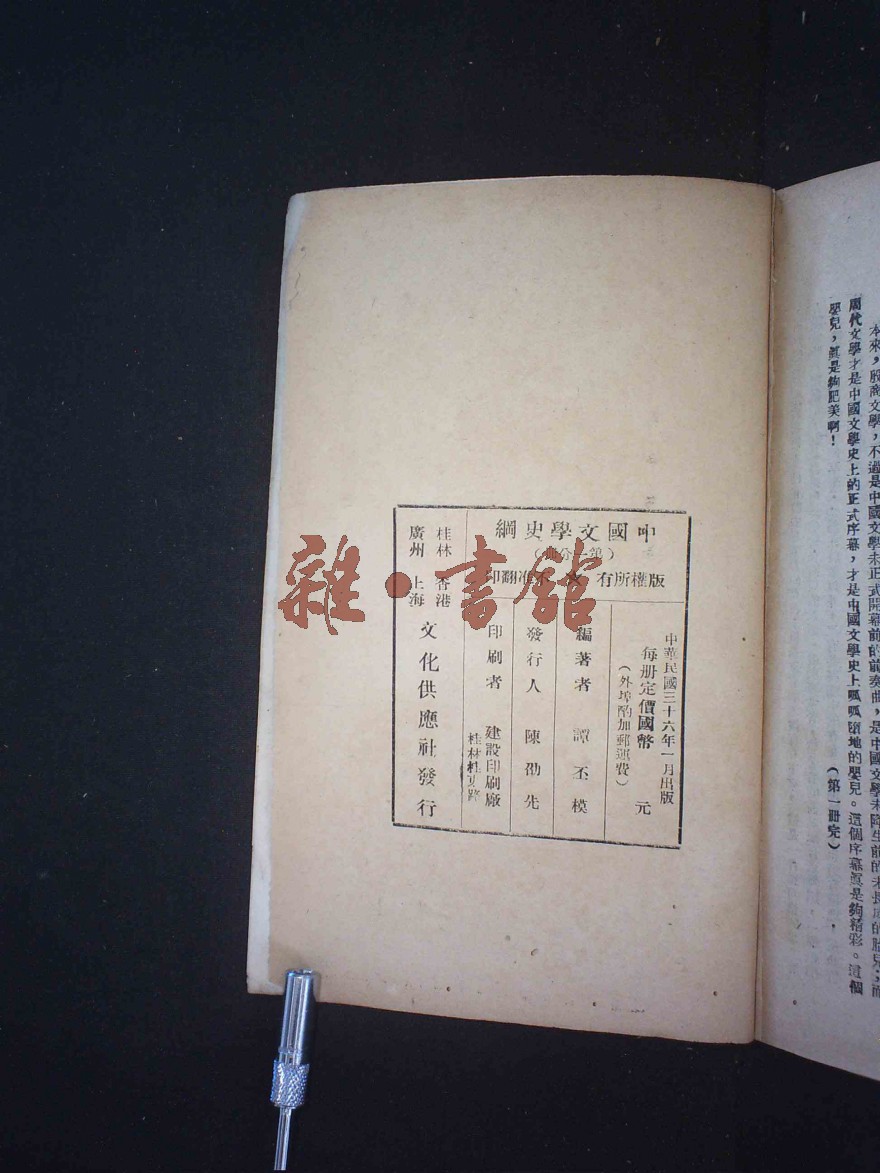 本來，殷商文學，不過是中國文學未正式開幕前的前奏曲，是中國文學未降生前的未長成的胎兒，而
周代文學才是中國文學史上的正式序幕，才是中國文學史上呱呱墮地的嬰兒。這個序幕眞是夠精彩。這個
嬰兒，眞是夠肥美啊！
（第一册完）
中國文學史綱
（第一分册）
版權所有 不准翻印
中華民國三十六年一月出版
每册定價國幣 元
（外埠酌加郵運費）
編著者 譚丕模
發行人 陳劭先
印刷者 建設印刷廠
桂林
桂林 香港
廣州 上海
文化供應社發行
雜·書館